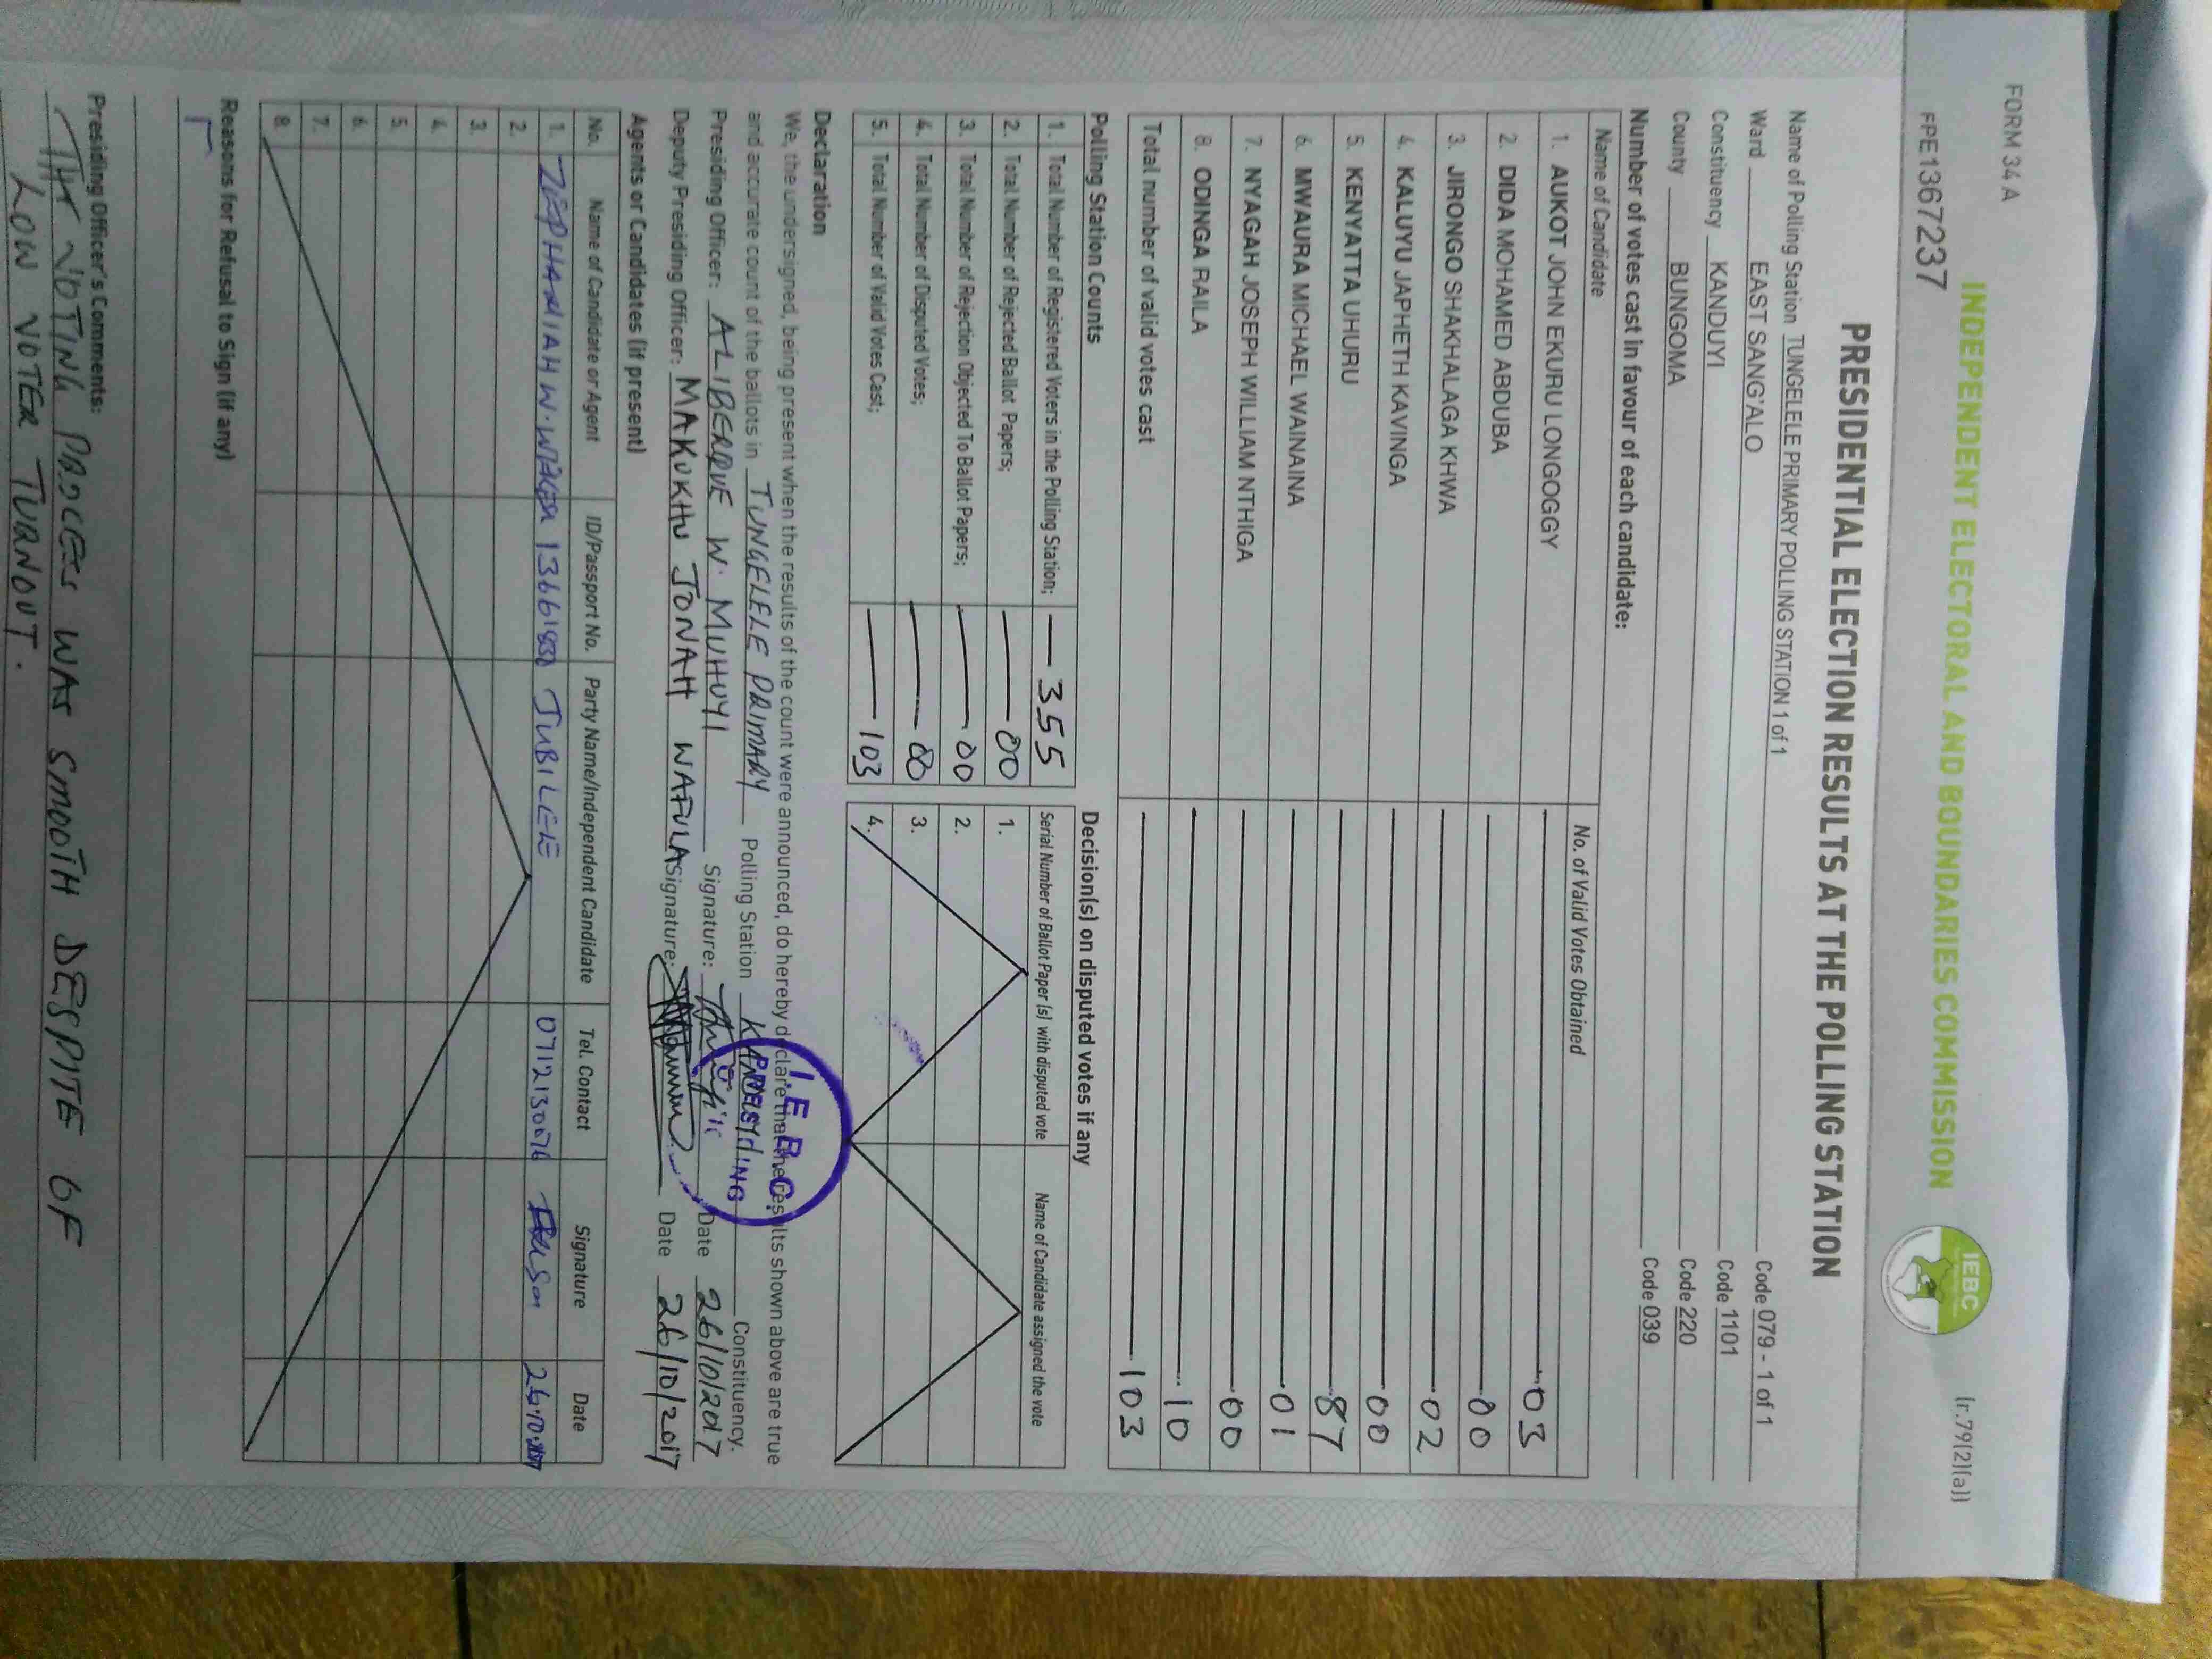 FORM 34 A
(r.79(2)(a))
FPE1367237
INDEPENDENT ELECTORAL AND BOUNDARIES COMMISSION
IEBC
PRESIDENTIAL ELECTION RESULTS AT THE POLLING STATION
Name of Polling Station TUNGELELE PRIMARY POLLING STATION 1 of 1 Code 079 - 1 of 1
Ward EAST SANG'ALO Code 1101
Constituency KANDUYI Code 220
County BUNGOMA Code 039
Number of votes cast in favour of each candidate:
Name of Candidate No. of Valid Votes Obtained
1. AUKOT JOHN EKURU LONGOGGY 03
2. DIDA MOHAMED ABDUBA 00
3. JIRONGO SHAKHALAGA KHWA 02
4. KALUYU JAPHETH KAVINGA 00
5. KENYATTA UHURU 87
6. MWAURA MICHAEL WAINAINA 01
7. NYAGAH JOSEPH WILLIAM NTHIGA 00
8. ODINGA RAILA 10
Total number of valid votes cast 103
Polling Station Counts
1. Total Number of Registered Voters in the Polling Station; 355
2. Total Number of Rejected Ballot Papers; 00
3. Total Number of Rejection Objected To Ballot Papers; 00
4. Total Number of Disputed Votes; 00
5. Total Number of Valid Votes Cast; 103
Decision(s) on disputed votes if any
Serial Number of Ballot Paper (s) with disputed vote Name of Candidate assigned the vote
1.
2.
3.
4.
Declaration
We, the undersigned, being present when the results of the count were announced, do hereby declare that the results shown above are true
and accurate count of the ballots in TUNGELELE PRIMARY Polling Station Constituency.
I.E.B.C.
PRESIDING
Presiding Officer: ALIBERQUE W. MUHUYI Signature: Date 26/10/2017
Deputy Presiding Officer: MAKUKHU JONAH WAFULA Signature: Date 26/10/2017
Agents or Candidates (if present)
No. Name of Candidate or Agent ID/Passport No. Party Name/Independent Candidate Tel. Contact Signature Date
1. ZEPHANIAH W. JUBILEE
2.
3.
4.
5.
6.
7.
8.
Reasons for Refusal to Sign (if any)
Presiding Officer's Comments:
TH VOTING PROCES WAS SMOOTH DESPITE OF
LOW VOTER TURNOUT.